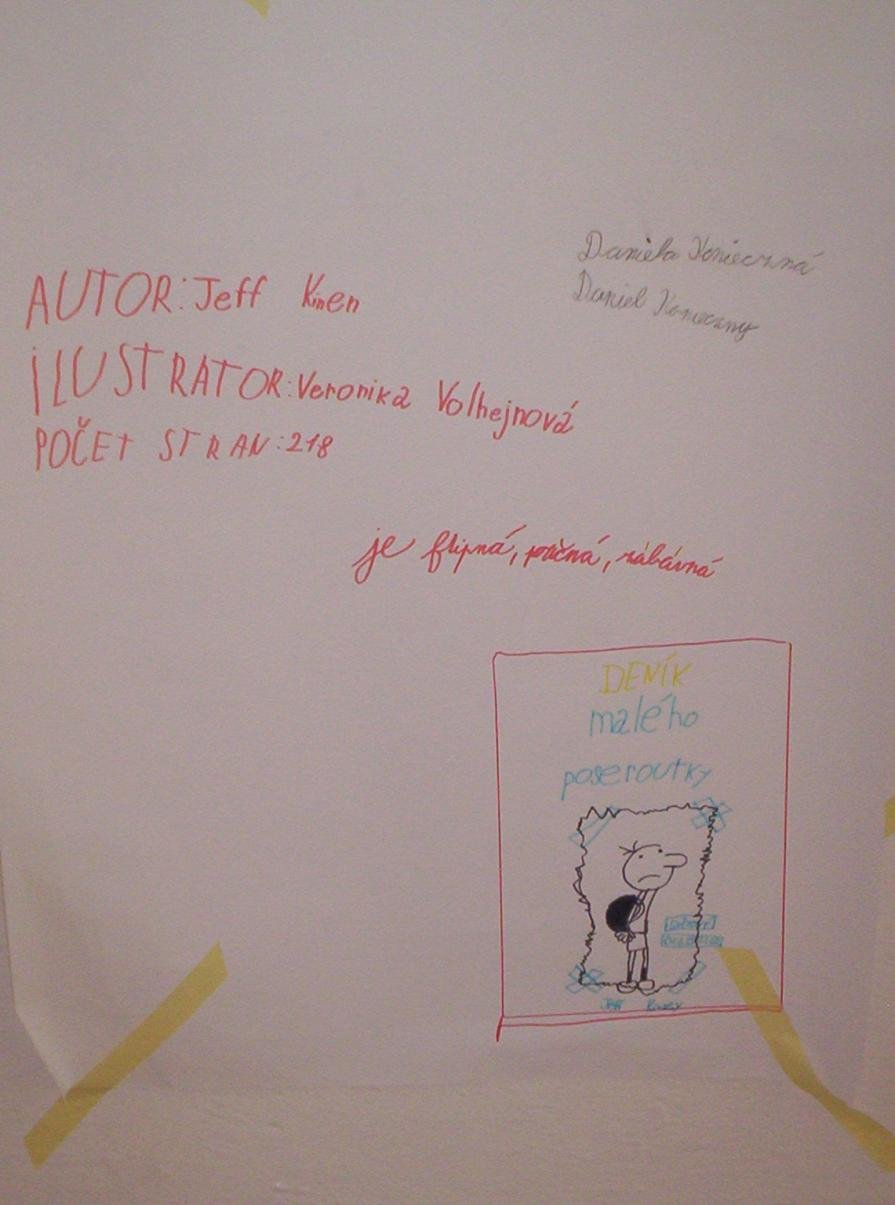 Daniela Konieczná
Daniel Konieczny
AUTOR: Jeff Kinen
ILUSTRATOR: Veronika Volhejnová
POČET STRAN: 218
je flipná, poučná, zábavná
DENÍK
malého
poseroutky
Jeff Kinney